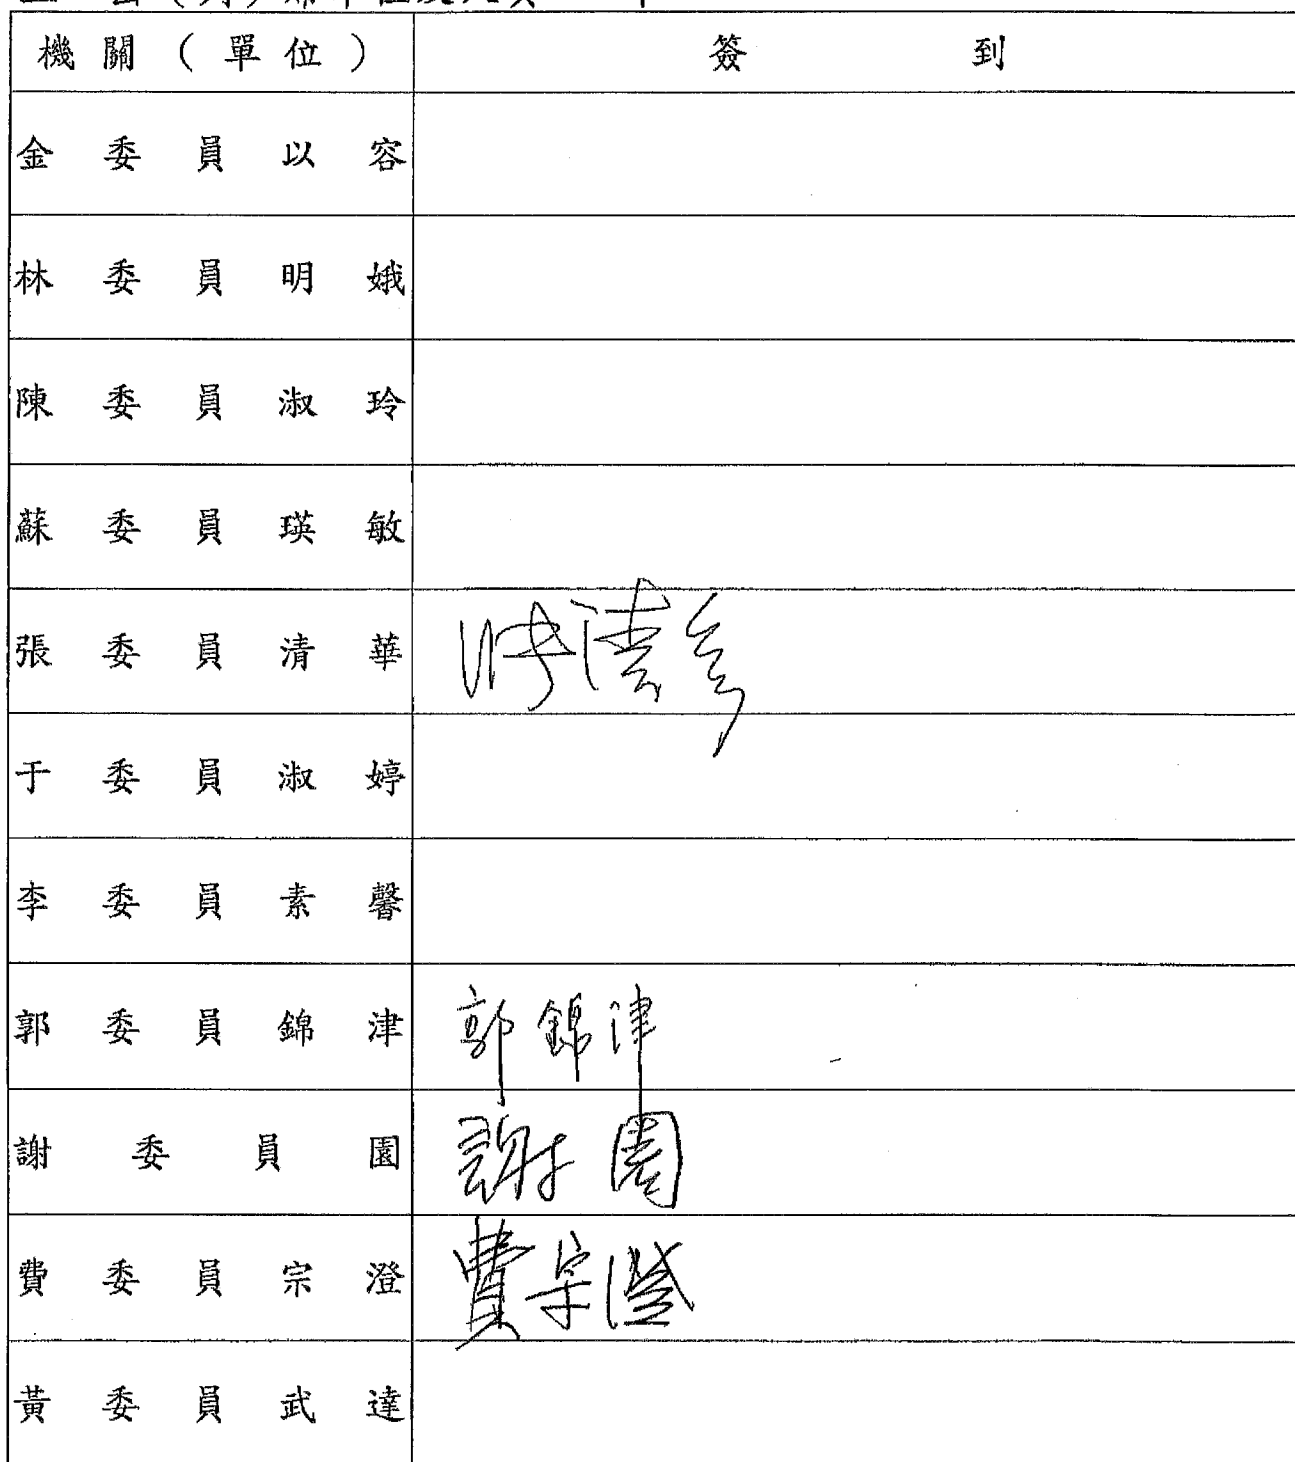 機關（單位） 簽到
金委員以容
林委員明娥
陳委員淑玲
蘇委員瑛敏
張委員清華 張清華
于委員淑婷
李委員素馨
郭委員錦津 郭錦津
謝委員園 謝園
費委員宗澄 費宗澄
黃委員武達